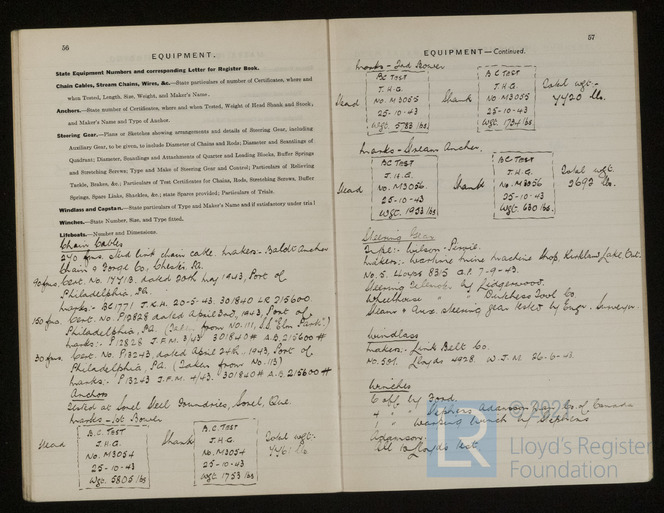 56
EQUIPMENT.
State Equipment Numbers and corresponding Letter for Register Book.
Chain Cables, Stream Chains, Wires, &c.—State particulars of number of Certificates, where and
when Tested, Length, Size, Weight, and Maker's Name.
Anchors.—State number of Certificates, where and when Tested, Weight of Head Shank and Stock,
and Maker's Name and Type of Anchor.
Steering Gear.—Plans or Sketches showing arrangements and details of Steering Gear, including
Auxiliary Gear, to be given, to include Diameter of Chains and Rods; Diameter and Scantlings of
Quadrant; Diameter, Scantlings and Attachments of Quarter and Leading Blocks, Buffer Springs
and Stretching Screws; Type and Make of Steering Gear and Control; Particulars of Relieving
Tackle, Brakes, &c.; Particulars of Test Certificates for Chains, Rods, Stretching Screws, Buffer
Springs, Spare Links, Shackles, &c.; state Spares provided; Particulars of Trials.
Windlass and Capstan.—State particulars of Type and Maker's Name and if satisfactory under trial
Winches.—State Number, Size, and Type fitted.
Lifeboats.—Number and Dimensions.
Chain Cables
240 fms. stud link chain cable. Makers:- Baldt Anchor
Chain & Forge Co., Chester, Pa.
90 fms. Cert. No. dated 20th May 1943, Port of
Philadelphia, Pa.
Marks:- J.F.H. 20-5-43. 301840 LR 215600.
150 fms. Cert. No. P12828 dated April 3rd, 1943, Port of
Philadelphia, Pa. (Taken from No. 111, "Elm Park")
Marks:- P12828 J.F.M. 3/43 301840# A.B. 215600#
30 fms. Cert. No. P13243, dated April 24th, 1943, Port of
Philadelphia, Pa. (Taken from No. 113)
Marks:- P13243 J.F.M. 4/43. 301840# A.B. 215600#
Anchors
Tested at Sorel Steel Foundries, Sorel, Que.
Marks - 1st Bower
Head
B.C. TEST
J.H.G.
No. M3054
25-10-43
Wgt. 5805 lbs
Shank
B.C. TEST
J.H.G.
No. M3054
25-10-43
Wgt. 1753 lbs
Total wgt.-
57
EQUIPMENT—Continued.
Marks - 2nd Bower
Head
BC TEST
J.H.G.
No. M3055
25-10-43
Wgt. 5783 lbs.
Shank
B.C. TEST
J.H.G.
No. M3055
25-10-43
Wgt. 1734 lbs.
Total wgt.-
7420 lbs.
Marks - Stream Anchor.
Head
BC TEST
J.H.G.
No. M3056
25-10-43
Wgt. 1953 lbs
Shank
BC TEST
J.H.G.
No. M3056
25-10-43
Wgt. 630 lbs.
Total wgt.
2692 lbs.
Steering Gear
Type:- Wilson - Pirrie.
Makers:- Machine Shop, Kirkland Lake, Ont.
No. 5. Lloyds 8315 G.P. 7-9-43.
Steering Telemotor by Lidgerwood.
Wheelhouse " " Tool Co.
Steam & Aux. steering gear tested by Engr. Surveyor.
Windlass
Makers:- Link Belt Co.
No. 501. Lloyds 4928. W.J.M. 26-6-43
Winches
6 off by
4 " " Stephens Adamson Co. of Canada
1 " Warping Winch by Stephens
Adamson.
All to Lloyds Test.
© 202
Lloyd's Register
Foundation
LR